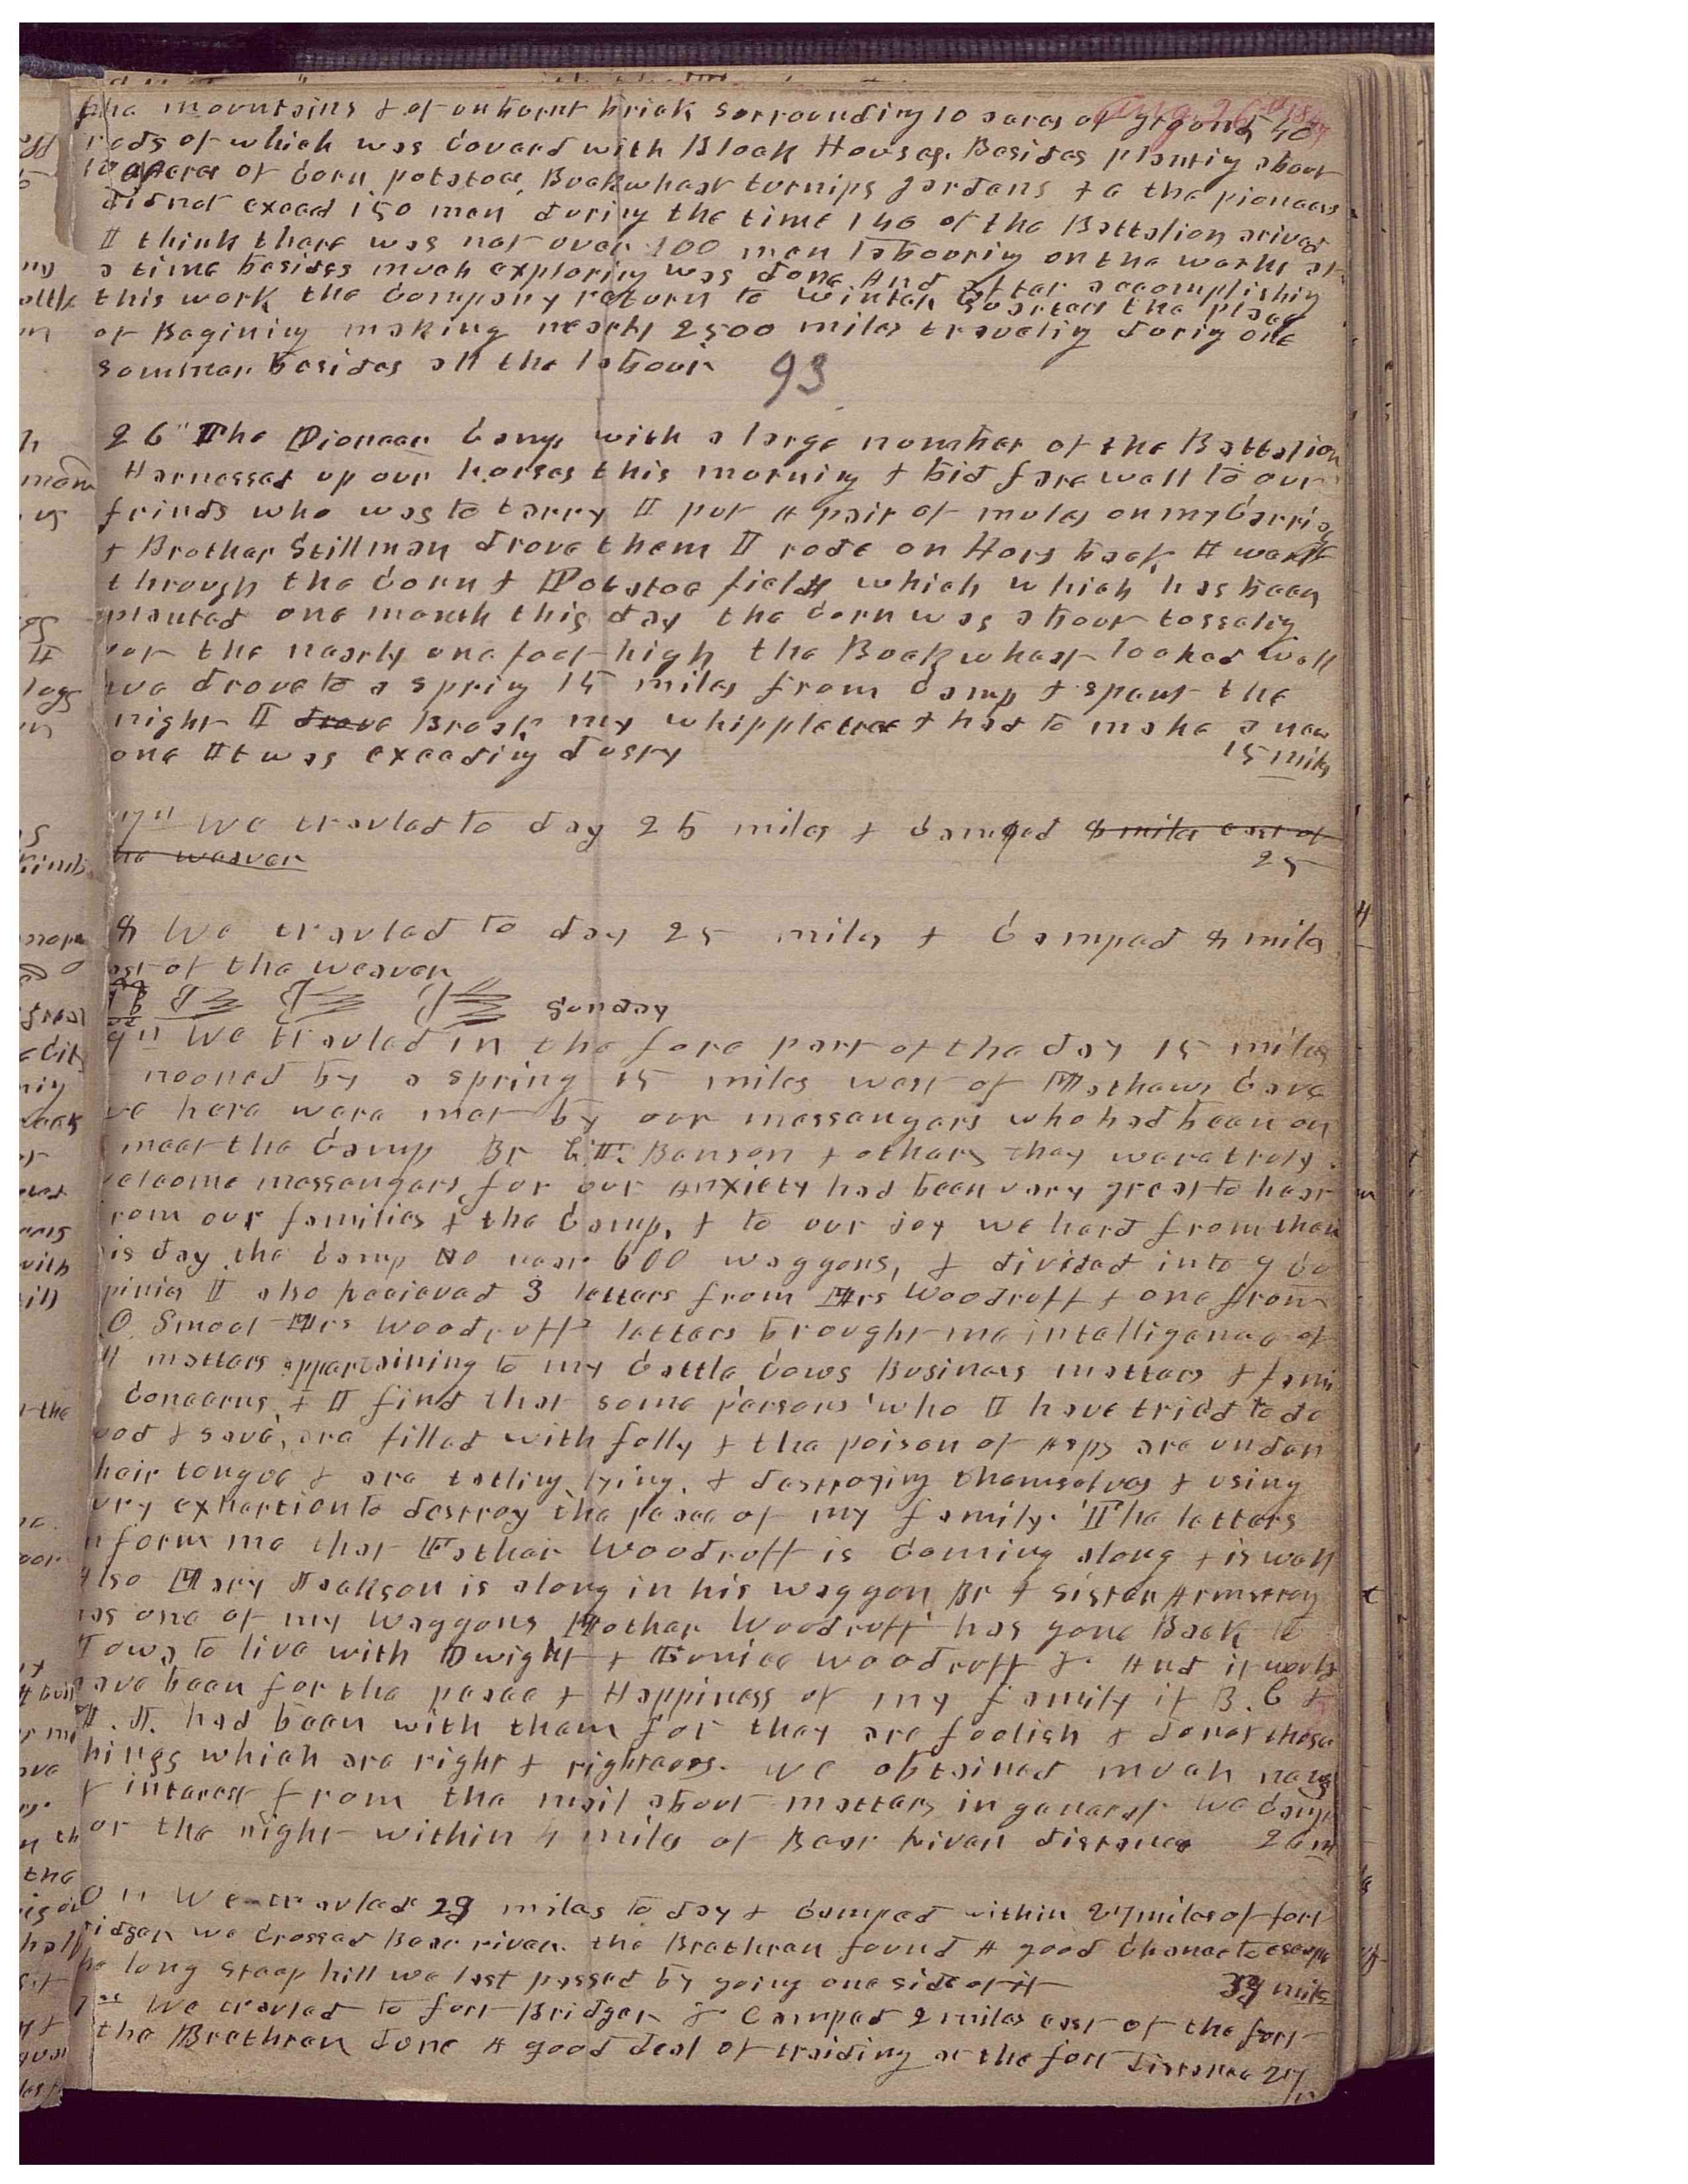 the mountains & of unburnt brick sorrounding 10 acres of ground 40
Aug. 26th 1847
rods of which was Coverd with Block Houses. Besides planting about
10 acres of Corn potatoes, Buckwheat turnips gardens &c the pioneers
did not exceed 150 men during the time 140 of the Battalion arived
I think there was not over 100 men labouring on the works at
a time besides much exploring was done. And after accomplishing
this work the Company return to winter Quarters the place
of Begining making nearly 2500 miles traveling during one
summer besides all the labour
93
26" The Pioneer Camp with a large number of the Battalion
Harnessed up our horses this morning & bid farewell to our
frinds who was to tarry I put A pair of mules on my Carriag
& Brother Stillman drove them I rode on Hors back. I went
through the Corn & Potatoe field which which has been
planted one month this day the Corn was about tosseling
out the nearly one foot high the Buckwheat looked well
we drove to a spring 15 miles from Camp & spent the
night I drove Broak my whippletree & had to make a new
one It was exceeding dusty 15 miles
7" We travled to day 25 miles & Camped 8 miles east of
he weaver 25
8 We travled to day 25 miles & Camped 8 miles
est of the weaver
Sunday
9" We travled in the fore part of the day 15 miles
nooned by a spring 15 miles west of Mathews Cave
we here were met by our messengers who had been on
meet the Camp Br E.T. Benson & others they were truly
elcome messengers for our Anxiety had been very great to hear
rom our families & the Camp, & to our joy we hard from them
is day the Camp No near 600 waggons, & divided into 9 Co
pinies I also Recieved 3 letters from Mrs Woodruff & one from
O. Smoot Mrs Woodruff letters brought me intelligence of
ll matters appertaining to my Cattle Cows Business matters & fami
Concerns, & I find that some persons who I have tried to do
ood & save, are filled with folly & the poison of Asps are under
heir tongue & are tatling lying, & destroying themselves & using
vry exhertion to destroy the peace of my family. The letters
nform me that Father Woodruff is Coming along & is well
Also Mary Jackson is along in his waggon Br & Sister Armstrong
as one of my waggons Mother Woodruff has gone Back to
Iowa to live with Dwight & Eunice Woodruff &. And it would
ave been for the peace & Happiness of my family if B. C &
had been with them for they are foolish & do not those
hings which are right & righteous. We obtained much news
& interest from the mail about matters in general We Camp
or the night within 4 miles of Bear River distance 26 m
0" We travled 23 miles to day & Camped within 27 miles of fort
ridger we Crossed Bear river. the Brethren found A good Chance to escape
he long steep hill we last passed by going one side of it miles
We travled to fort Bridger & Camped 2 miles east of the fort
the Brethren done A good deal of traiding at the fort distance 27